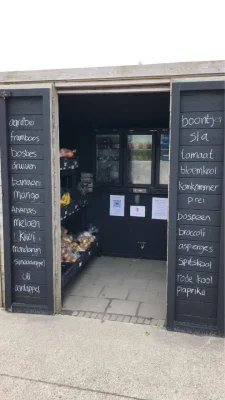 aardbei
framboos
bosbes
druiven
banaan
mango
Ananas
meloen
Kiwi
mandarijn
sinaasappel
Ui
aardappel
boontje
sla
tomaat
bloemkool
komkommer
prei
bospeen
broccoli
asperges
spitskool
rode kool
paprika